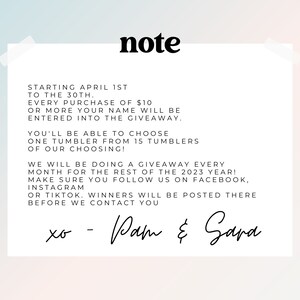 note
STARTING APRIL 1ST
TO THE 30TH.
EVERY PURCHASE OF $10
OR MORE YOUR NAME WILL BE
ENTERED INTO THE GIVEAWAY.
YOU'LL BE ABLE TO CHOOSE
ONE TUMBLER FROM 15 TUMBLERS
OF OUR CHOOSING!
WE WILL BE DOING A GIVEAWAY EVERY
MONTH FOR THE REST OF THE 2023 YEAR!
MAKE SURE YOU FOLLOW US ON FACEBOOK,
INSTAGRAM
OR TIKTOK. WINNERS WILL BE POSTED THERE
BEFORE WE CONTACT YOU
xo - Pam & Sara